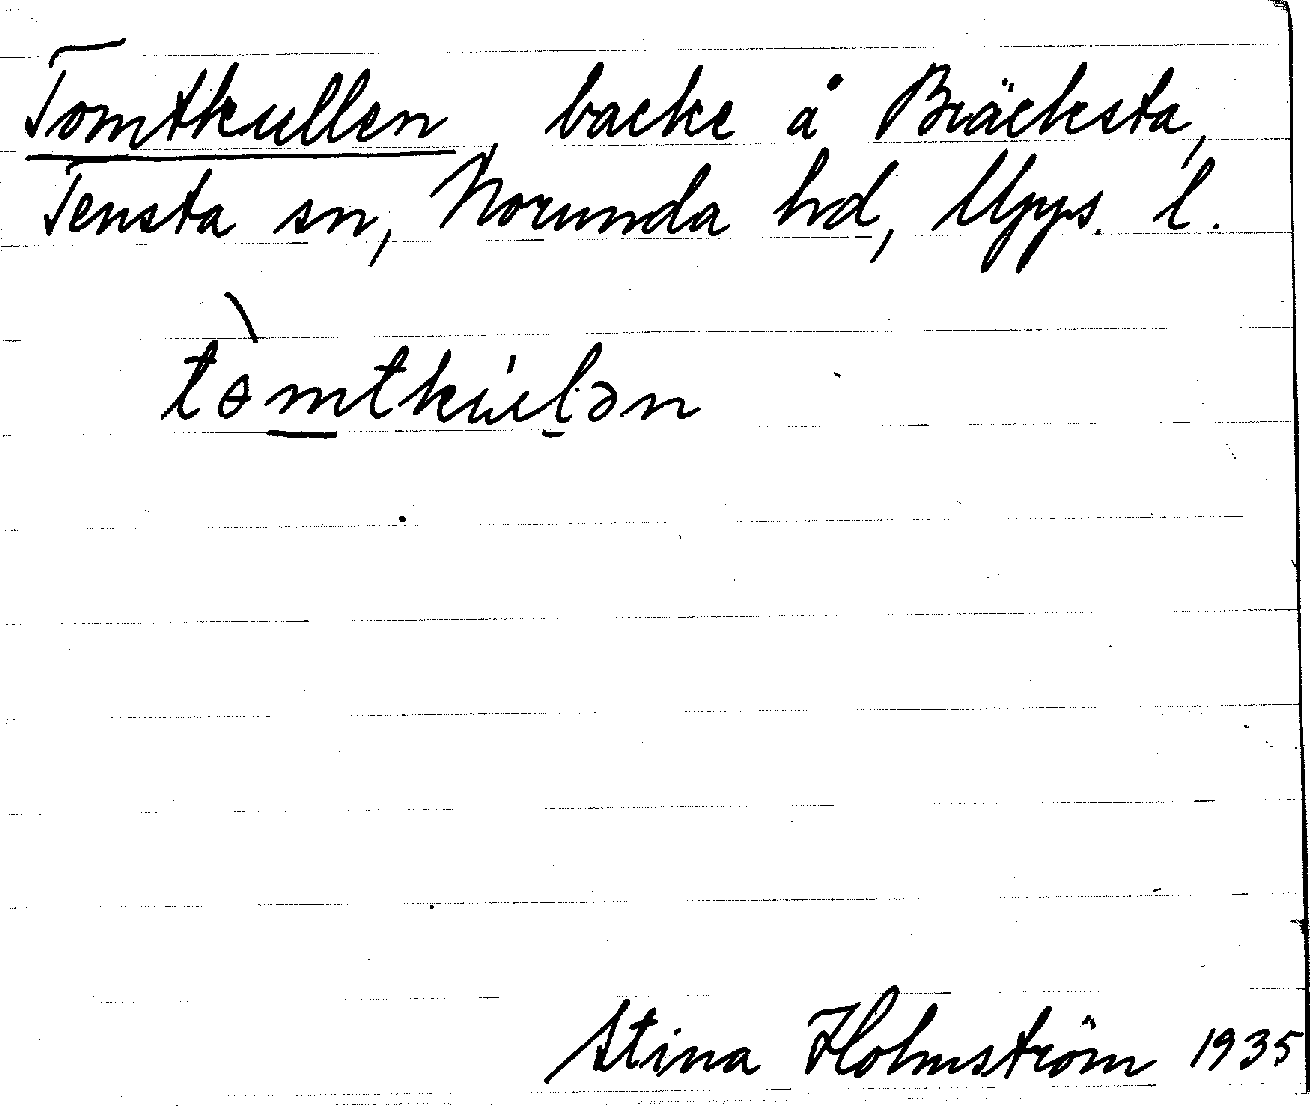 Tomtkullen, backe å Bräcksta,
Tensta sn, Norunda hd, Upps. l.
tɵ̀mtkúlən
Stina Holmström 1935